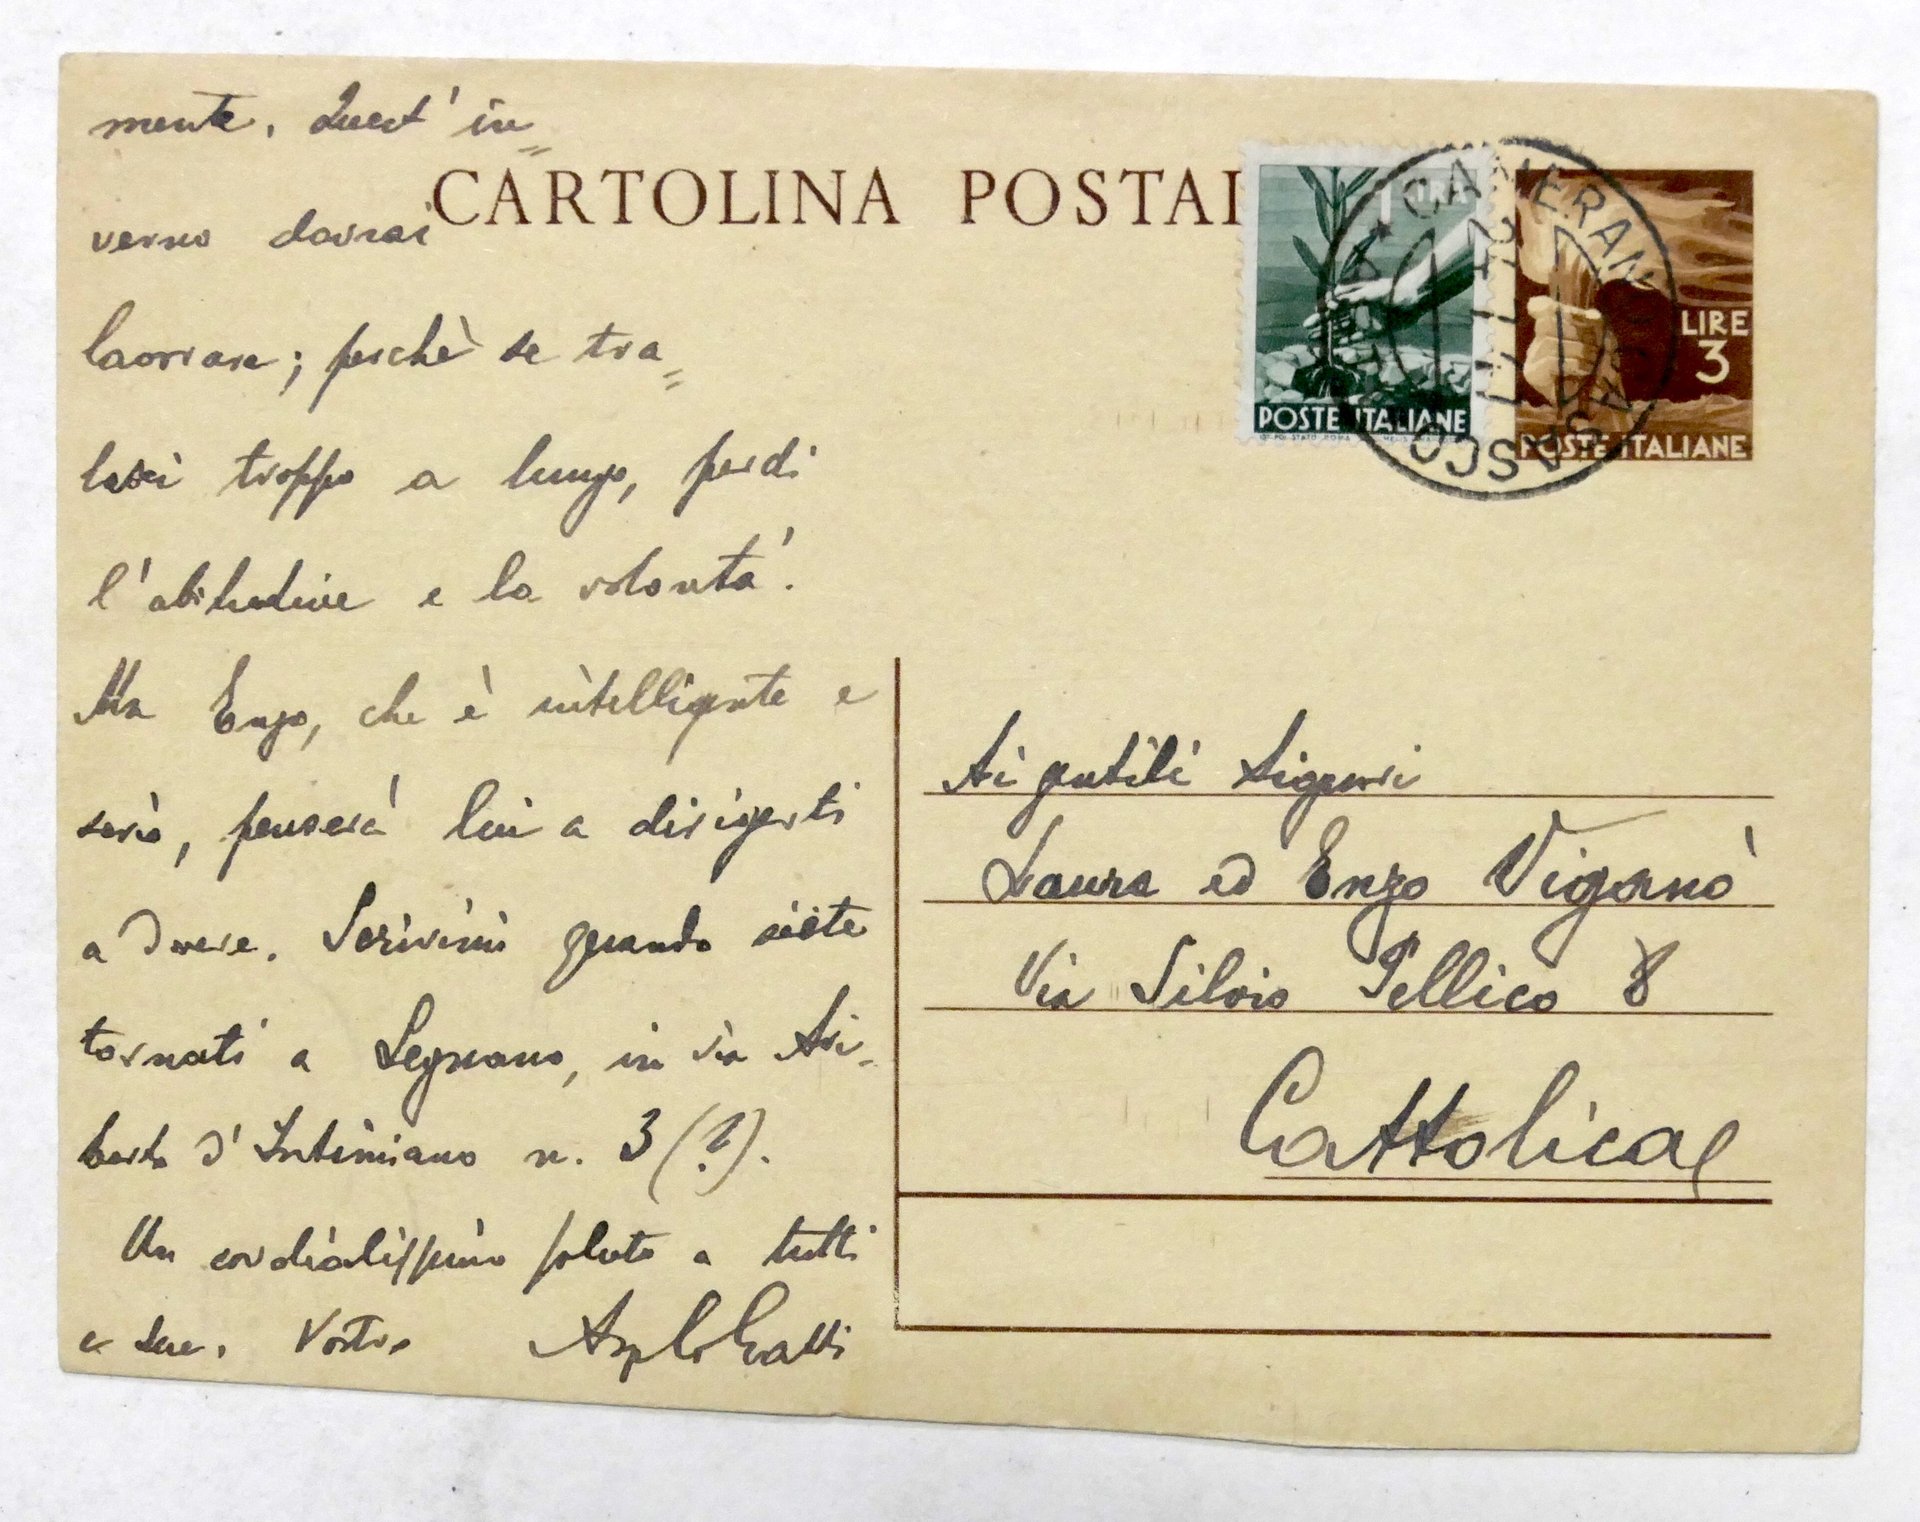 mente. Quest' in=
verno dovrai
lavorare; perchè se tra=
lasci troppo a lungo, perdi
l'abitudine e la volontà.
Ma Enzo, che è intelligente e
serio, penserà lui a dirigerti
a dovere. Scrivimi quando siete
tornati a Legnano, in via Ari-
berto d'Intimiano n. 3 (?).
Un cordialissimo saluto a tutti
e due. Vostro
CARTOLINA POSTAL
1 LIRA
POSTE ITALIANE
LIRE
3
POSTE ITALIANE
CAMERANO CASASCO
Ai gentili Signori
Laura ed Enzo Viganò
Via Silvio Pellico 8
Cattolica